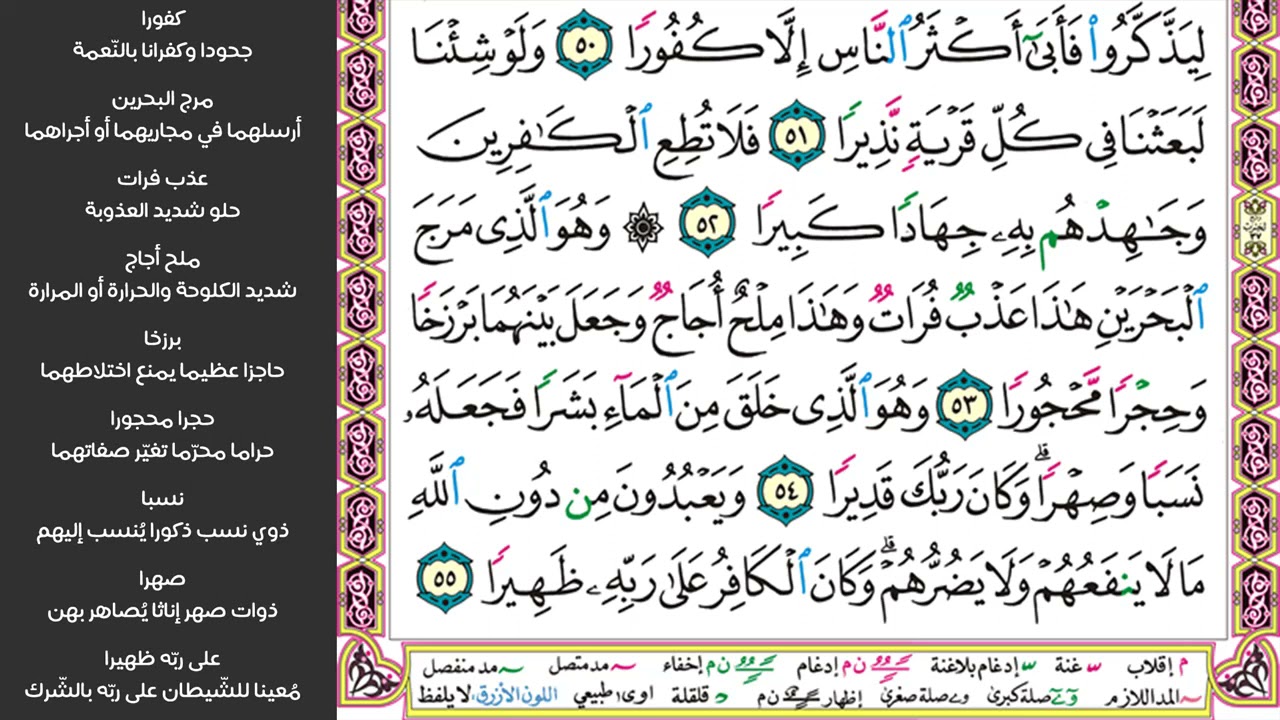 لِيَذَّكَّرُوا۟ فَأَبَىٰٓ أَكْثَرُ ٱلنَّاسِ إِلَّا كُفُورًا ٥٠ وَلَوْ شِئْنَا
لَبَعَثْنَا فِى كُلِّ قَرْيَةٍ نَّذِيرًا ٥١ فَلَا تُطِعِ ٱلْكَـٰفِرِينَ
وَجَـٰهِدْهُم بِهِۦ جِهَادًا كَبِيرًا ٥٢ ۞ وَهُوَ ٱلَّذِى مَرَجَ
ٱلْبَحْرَيْنِ هَـٰذَا عَذْبٌ فُرَاتٌ وَهَـٰذَا مِلْحٌ أُجَاجٌ وَجَعَلَ بَيْنَهُمَا بَرْزَخًا
وَحِجْرًا مَّحْجُورًا ٥٣ وَهُوَ ٱلَّذِى خَلَقَ مِنَ ٱلْمَآءِ بَشَرًا فَجَعَلَهُۥ
نَسَبًا وَصِهْرًا ۗ وَكَانَ رَبُّكَ قَدِيرًا ٥٤ وَيَعْبُدُونَ مِن دُونِ ٱللَّهِ
مَا لَا يَنفَعُهُمْ وَلَا يَضُرُّهُمْ ۗ وَكَانَ ٱلْكَافِرُ عَلَىٰ رَبِّهِۦ ظَهِيرًا ٥٥
م إقلاب غنة إدغام بلاغنة ن م إدغام ن م إخفاء مد متصل مد منفصل
المد اللازم صلة كبرى صلة صغرى إظهار ن م قلقلة اوى طبيعي اللون الأزرق، لا يلفظ
كفورا
جحودا وكفرانا بالنّعمة
مرج البحرين
أرسلهما في مجاريهما أو أجراهما
عذب فرات
حلو شديد العذوبة
ملح أجاج
شديد الكلوحة والحرارة أو المرارة
برزخا
حاجزا عظيما يمنع اختلاطهما
حجرا محجورا
حراما محرّما تغيّر صفاتهما
نسبا
ذوي نسب ذكورا يُنسب إليهم
صهرا
ذوات صهر إناثا يُصاهر بهن
على ربّه ظهيرا
مُعينا للشّيطان على ربّه بالشّرك